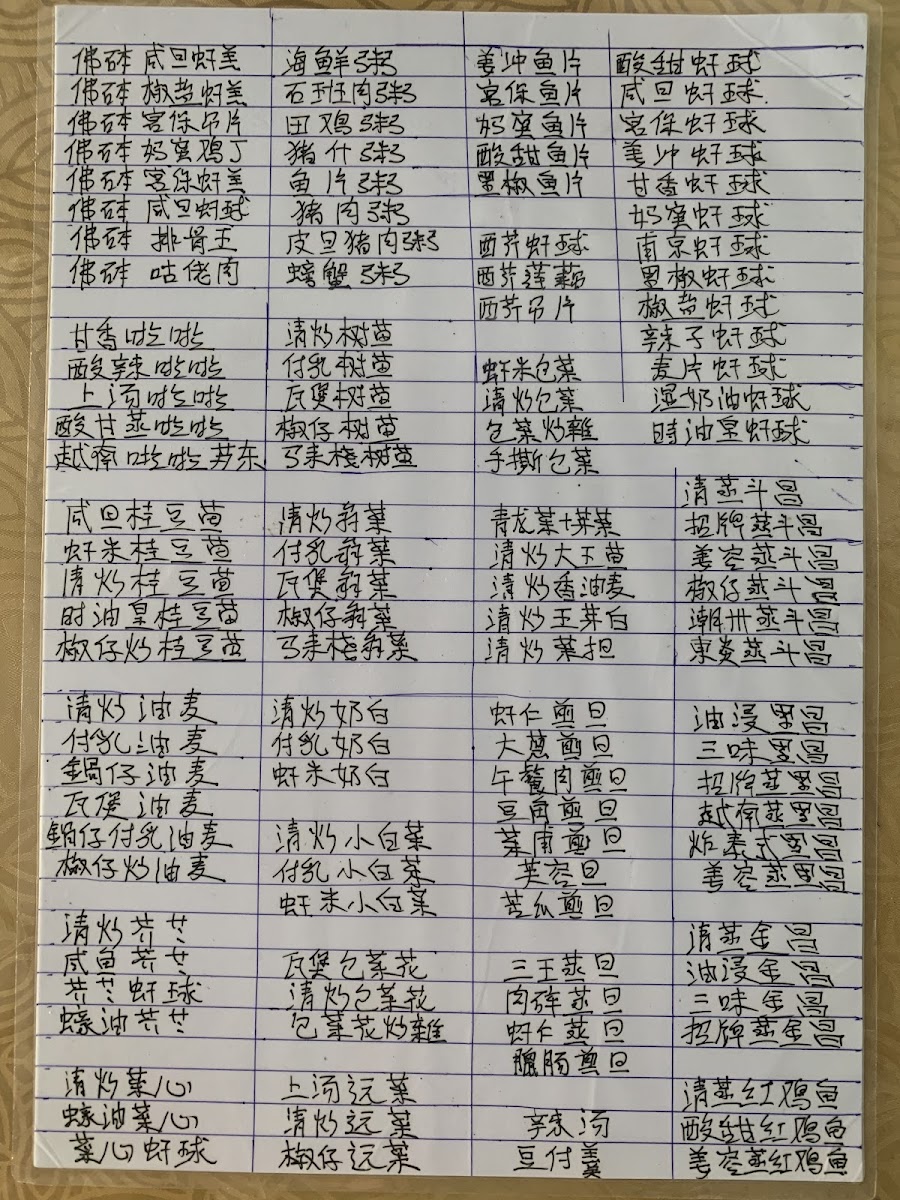 佛砵 咸旦虾羔
佛砵 椒盐虾羔
佛砵 宫保吊片
佛砵 奶蜜鸡丁
佛砵 宫保虾羔
佛砵 咸旦虾球
佛砵 排骨王
佛砵 咕佬肉
甘香啦啦
酸辣啦啦
上汤啦啦
酸甘蒸啦啦
越南啦啦芛东
咸旦桂豆苗
虾米桂豆苗
清炒桂豆苗
时油皇桂豆苗
椒仔炒桂豆苗
清炒油麦
付乳油麦
鍋仔油麦
瓦煲油麦
鍋仔付乳油麦
椒仔炒油麦
清炒芥艹
咸鱼芥艹
芥艹虾球
蠔油芥艹
清炒菜心
蠔油菜心
菜心虾球
海鲜粥
石班肉粥
田鸡粥
猪什粥
鱼片粥
猪肉粥
皮旦猪肉粥
螃蟹粥
清炒树苗
付乳树苗
瓦煲树苗
椒仔树苗
马来栈树苗
清炒翁菜
付乳翁菜
瓦煲翁菜
椒仔翁菜
马来栈翁菜
清炒奶白
付乳奶白
虾米奶白
清炒小白菜
付乳小白菜
虾米小白菜
瓦煲包菜花
清炒包菜花
包菜花炒雜
上汤远菜
清炒远菜
椒仔远菜
姜冲鱼片
宫保鱼片
奶蜜鱼片
酸甜鱼片
黑椒鱼片
西芹虾球
西芹莲藕
西芹吊片
虾米包菜
清炒包菜
包菜炒雜
手撕包菜
青龙菜+芽菜
清炒大王苗
清炒香油麦
清炒玉芽白
清炒菜担
虾仁煎旦
大葱煎旦
午餐肉煎旦
豆角煎旦
菜甫煎旦
芙容旦
苦瓜煎旦
三王蒸旦
肉碎蒸旦
虾仁蒸旦
腊肠煎旦
辣汤
豆付羹
酸甜虾球
咸旦虾球
宫保虾球
姜冲虾球
甘香虾球
奶蜜虾球
南京虾球
黑椒虾球
椒盐虾球
辣子虾球
麦片虾球
湿奶油虾球
時油皇虾球
清蒸斗昌
招牌蒸斗昌
姜容蒸斗昌
椒仔蒸斗昌
潮州蒸斗昌
東炎蒸斗昌
油浸黑昌
三味黑昌
招牌蒸黑昌
越南蒸黑昌
炸泰式黑昌
姜容蒸黑昌
清蒸金昌
油浸金昌
三味金昌
招牌蒸金昌
清蒸红鸡鱼
酸甜红鸡鱼
姜容蒸红鸡鱼